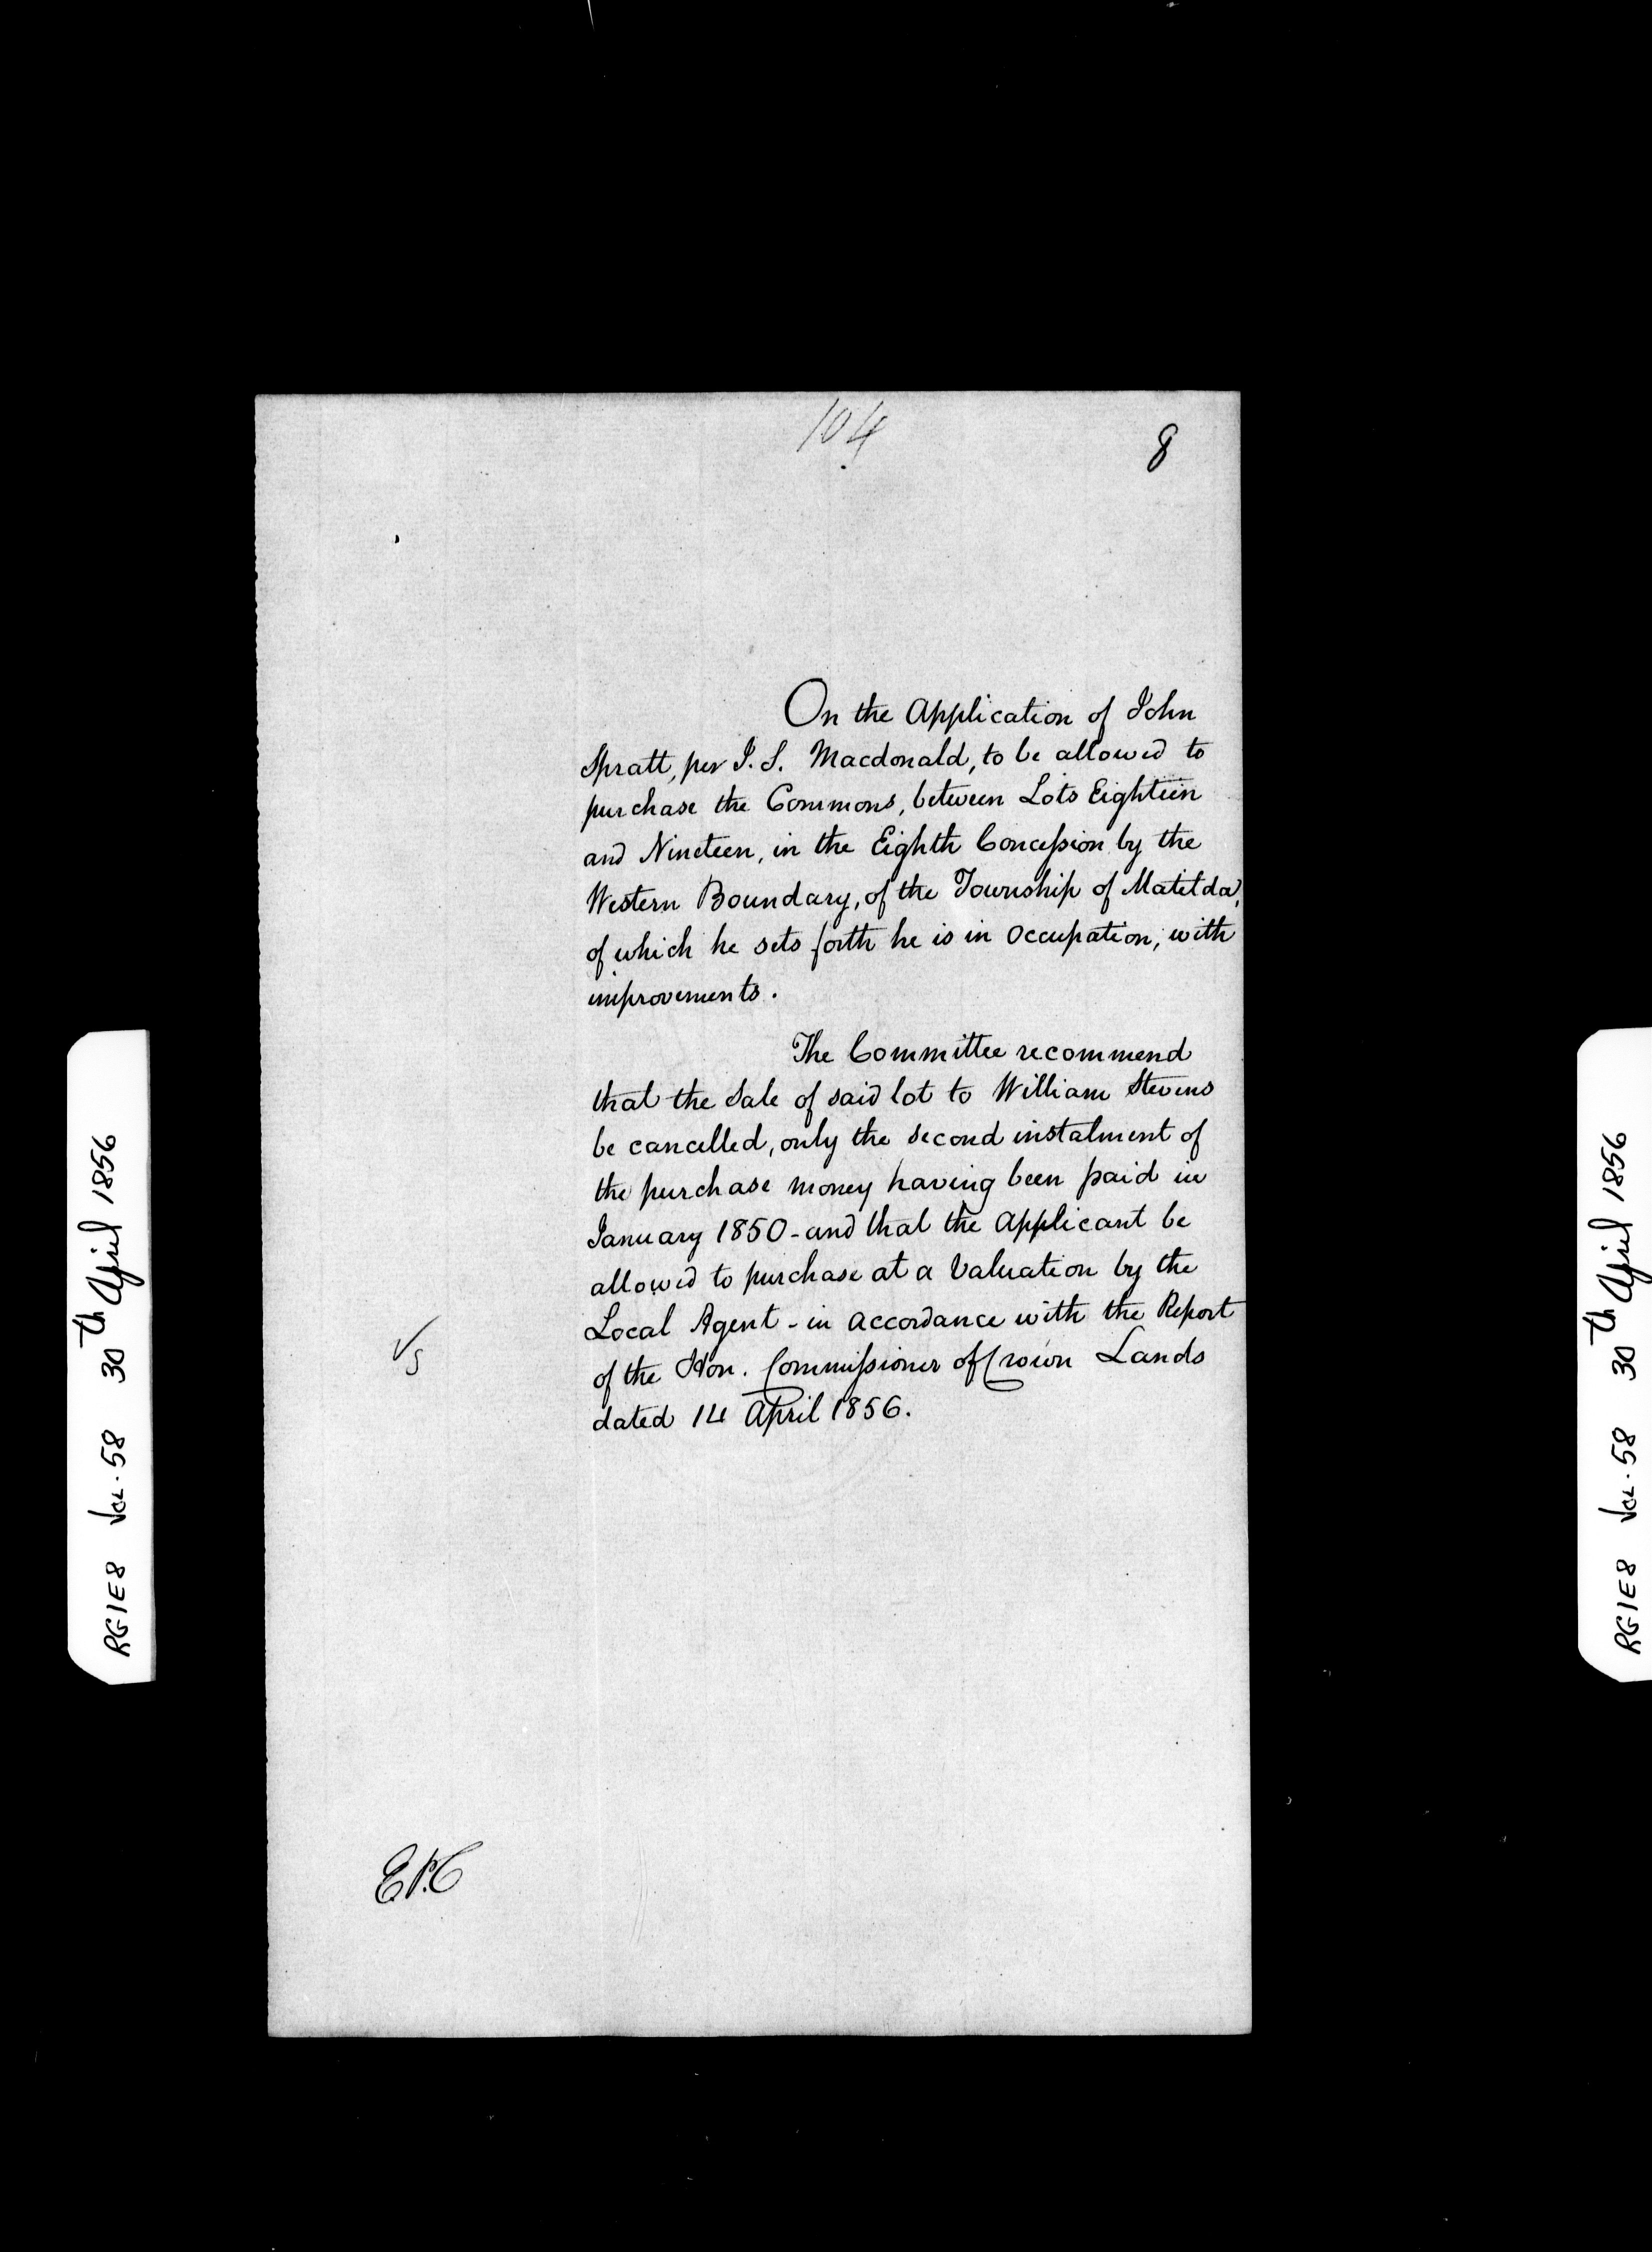 104
8
On the Application of John
Spratt, per J. S. Macdonald, to be allowed to
purchase the Commons, between Lots Eighteen
and Nineteen, in the Eighth Concession by the
Western Boundary, of the Township of Matilda,
of which he sets forth he is in Occupation, with
improvements.
The Committee recommend
that the Sale of said lot to William Stevens
be cancelled, only the second instalment of
the purchase money having been paid in
January 1850 - and that the Applicant be
allowed to purchase at a Valuation by the
Local Agent - in accordance with the Report
of the Hon. Commissioner of Crown Lands
dated 14 April 1856.
RG1E8 Vol. 58 30th April 1856
RG1E8 Vol. 58 30th April 1856